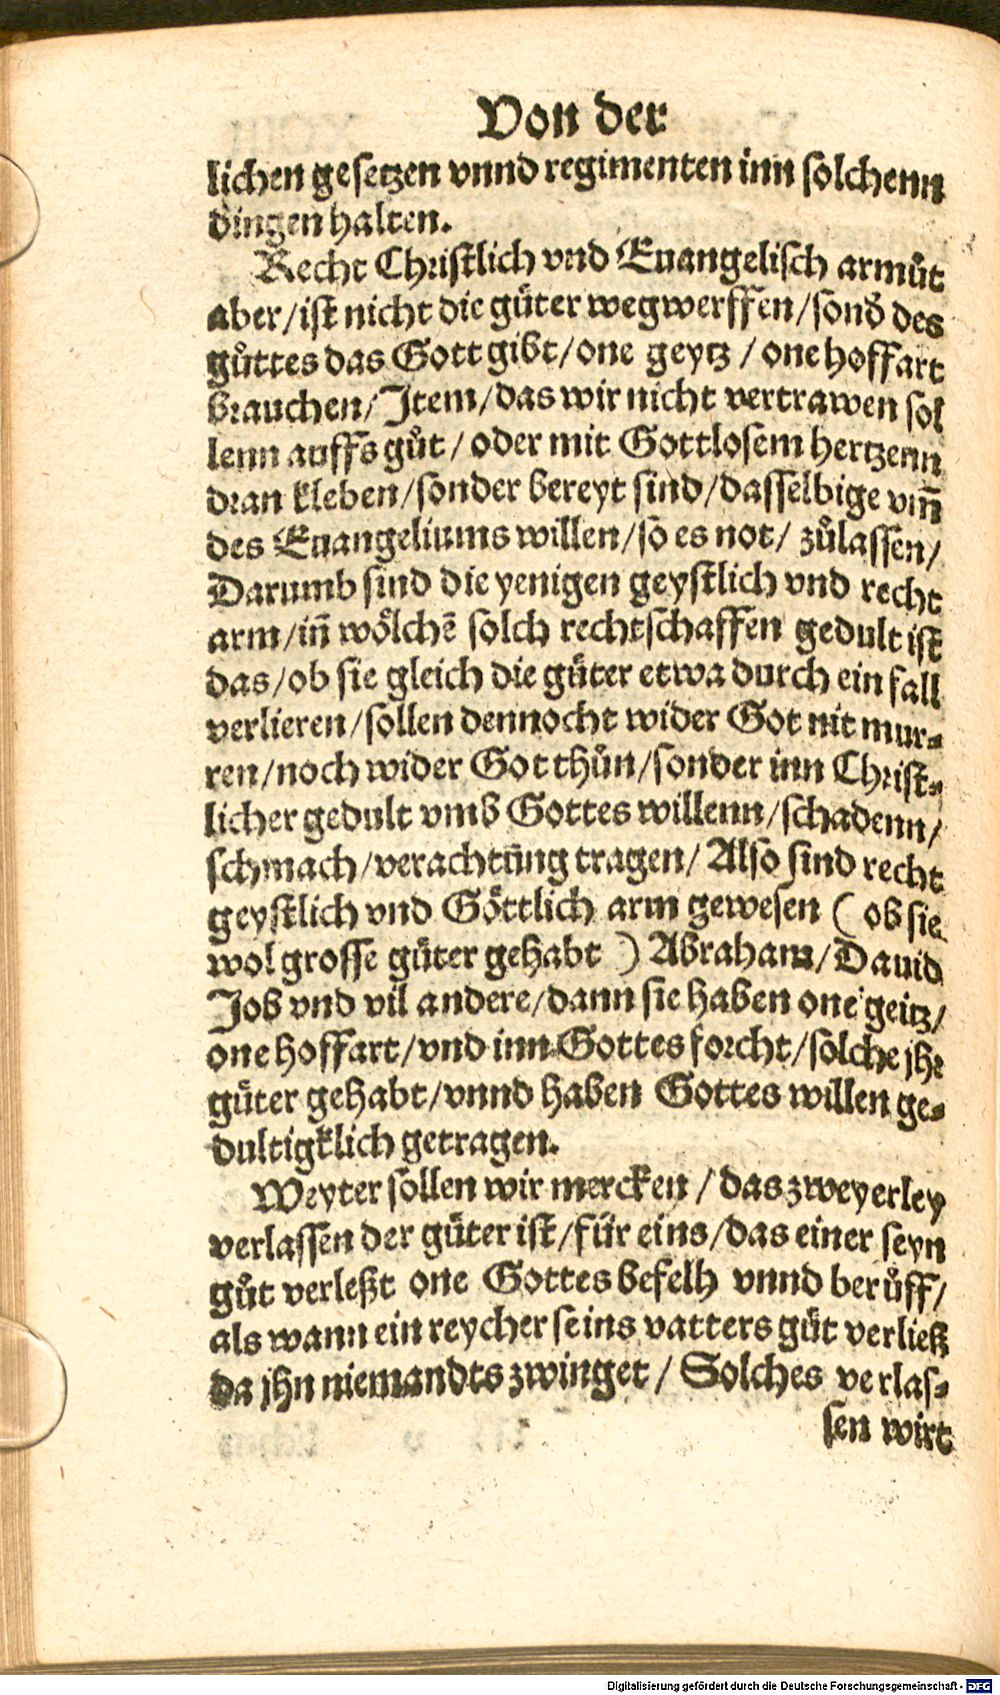 Von der
lichen gesetzen vnnd regimenten inn solchenn
dingen halten.
Recht Christlich vnd Euangelisch armůt
aber/ist nicht die gůter wegwerffen/sond̕ des
gůttes das Gott gibt/one geytz / one hoffart
brauchen/Jtem/das wir nicht vertrawen sol
lenn auffs gůt / oder mit Gottlosem hertzenn
dran kleben/sonder bereyt sind/dasselbige vm̄
des Euangeliums willen/so es not/ zůlassen/
Darumb sind die yenigen geystlich vnd recht
arm/in̄ wölchē solch rechtschaffen gedult ist
das/ob sie gleich die güter etwa durch ein fall
verlieren/sollen dennocht wider Got nit mur-
ren/noch wider Got thůn/sonder inn Christ-
licher gedult vmb Gottes willenn/schadenn/
schmach/verachtūng tragen/ Also sind recht
geystlich vnd Göttlich arm gewesen ( ob sie
wol grosse güter gehabt ) Abraham/Dauid
Job vnd vil andere/dann sie haben one geitz/
one hoffart/vnd inn Gottes forcht/solche jhr
güter gehabt/vnnd haben Gottes willen ge-
dultigklich getragen.
Weyter sollen wir mercken / das zweyerley
verlassen der güter ist/für eins/das einer seyn
gůt verleßt one Gottes befelh vnnd berůff/
als wann ein reycher seins vatters gůt verließ
da jhn niemandts zwinget / Solches verlas-
sen wirt
Digitalisierung gefördert durch die Deutsche Forschungsgemeinschaft - DFG